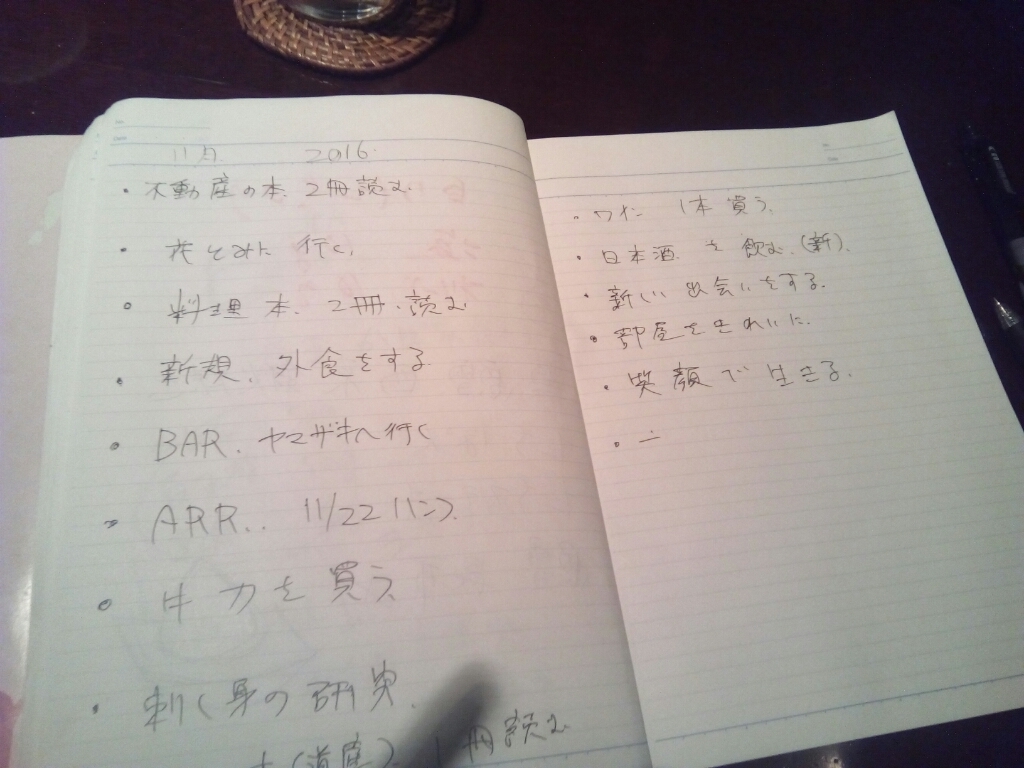 11月 2016
・不動産の本 2冊読む
・花とみに行く
・料理本 2冊読む
・新規 外食をする
・BAR. ヤマザキへ行く
・ARR.. 11/22
・牛刀を買う
・刺し身の研究
(道産) 1冊読む
・ワイン 1本買う
・日本酒を飲む(新)
・新しい出会いをする
・部屋をきれいに
・笑顔で生きる